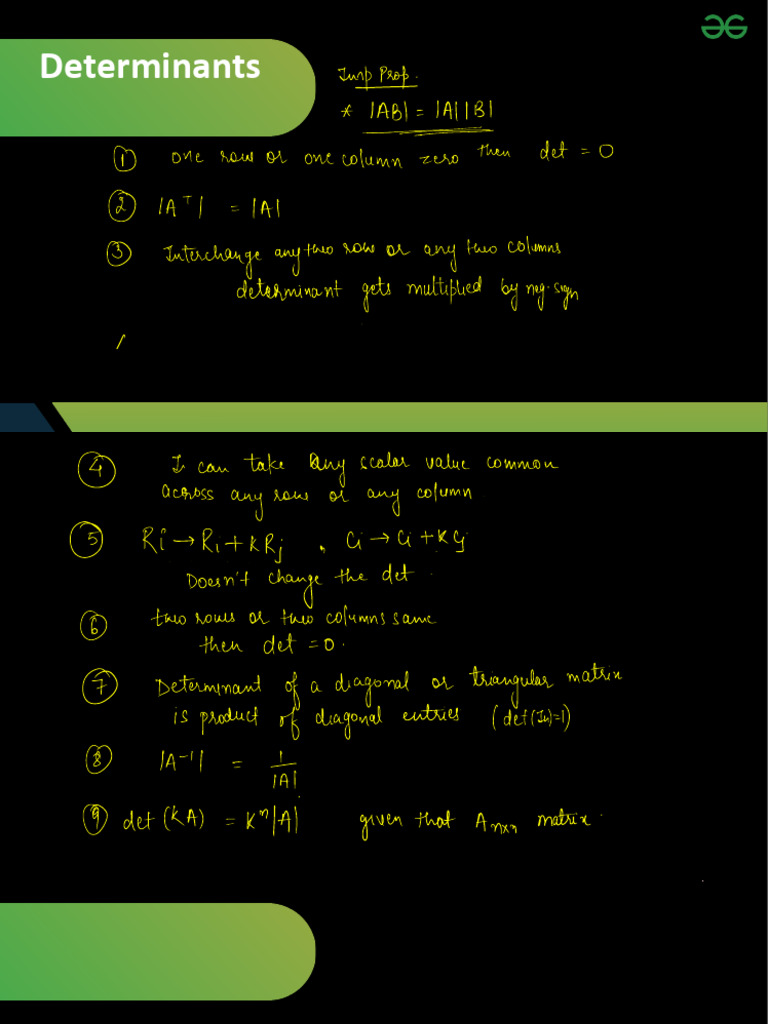 Determinants
Imp Prop.
* |AB| = |A||B|
① one row or one column zero then det = 0
② |Aᵀ| = |A|
③ Interchange any two rows or any two columns
determinant gets multiplied by neg. sign
④ I can take any scalar value common
across any row or any column
⑤ Ri → Ri + KRj , Ci → Ci + KCj
Doesn't change the det.
⑥ two rows or two columns same
then det = 0.
⑦ Determinant of a diagonal or triangular matrix
is product of diagonal entries (det(In)=1)
⑧ |A⁻¹| = 1/|A|
⑨ det (KA) = Kⁿ|A| given that Aₙₓₙ matrix.